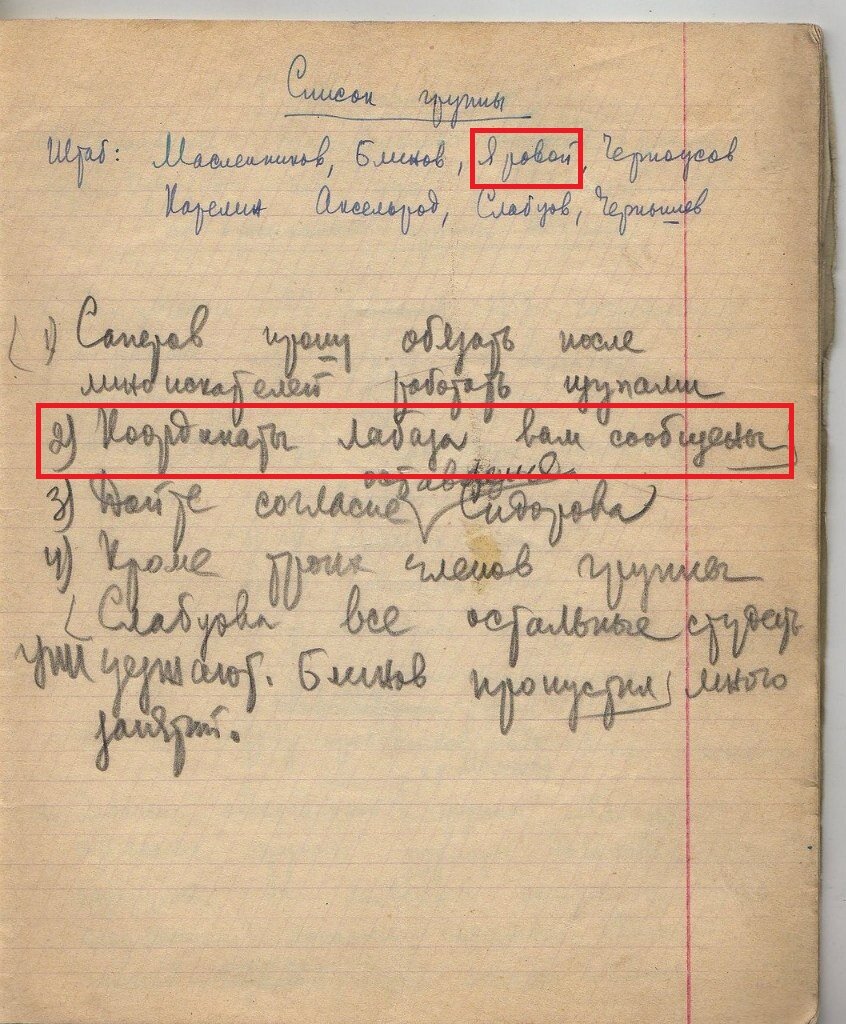 Список группы
Штаб: Масленников, Блинов, Яровой, Черноусов
Карелин Аксельрод, Слабцов, Чернышев
1) Саперов прошу обязать после
миноискателей работать щупами
2) Координаты лабаза вам сообщены
оставление
3) Дайте согласие Сидорова
4) Кроме троих членов группы
(Слабцова все остальные студенты
УПИ уезжают. Блинов пропустил много
занятий.